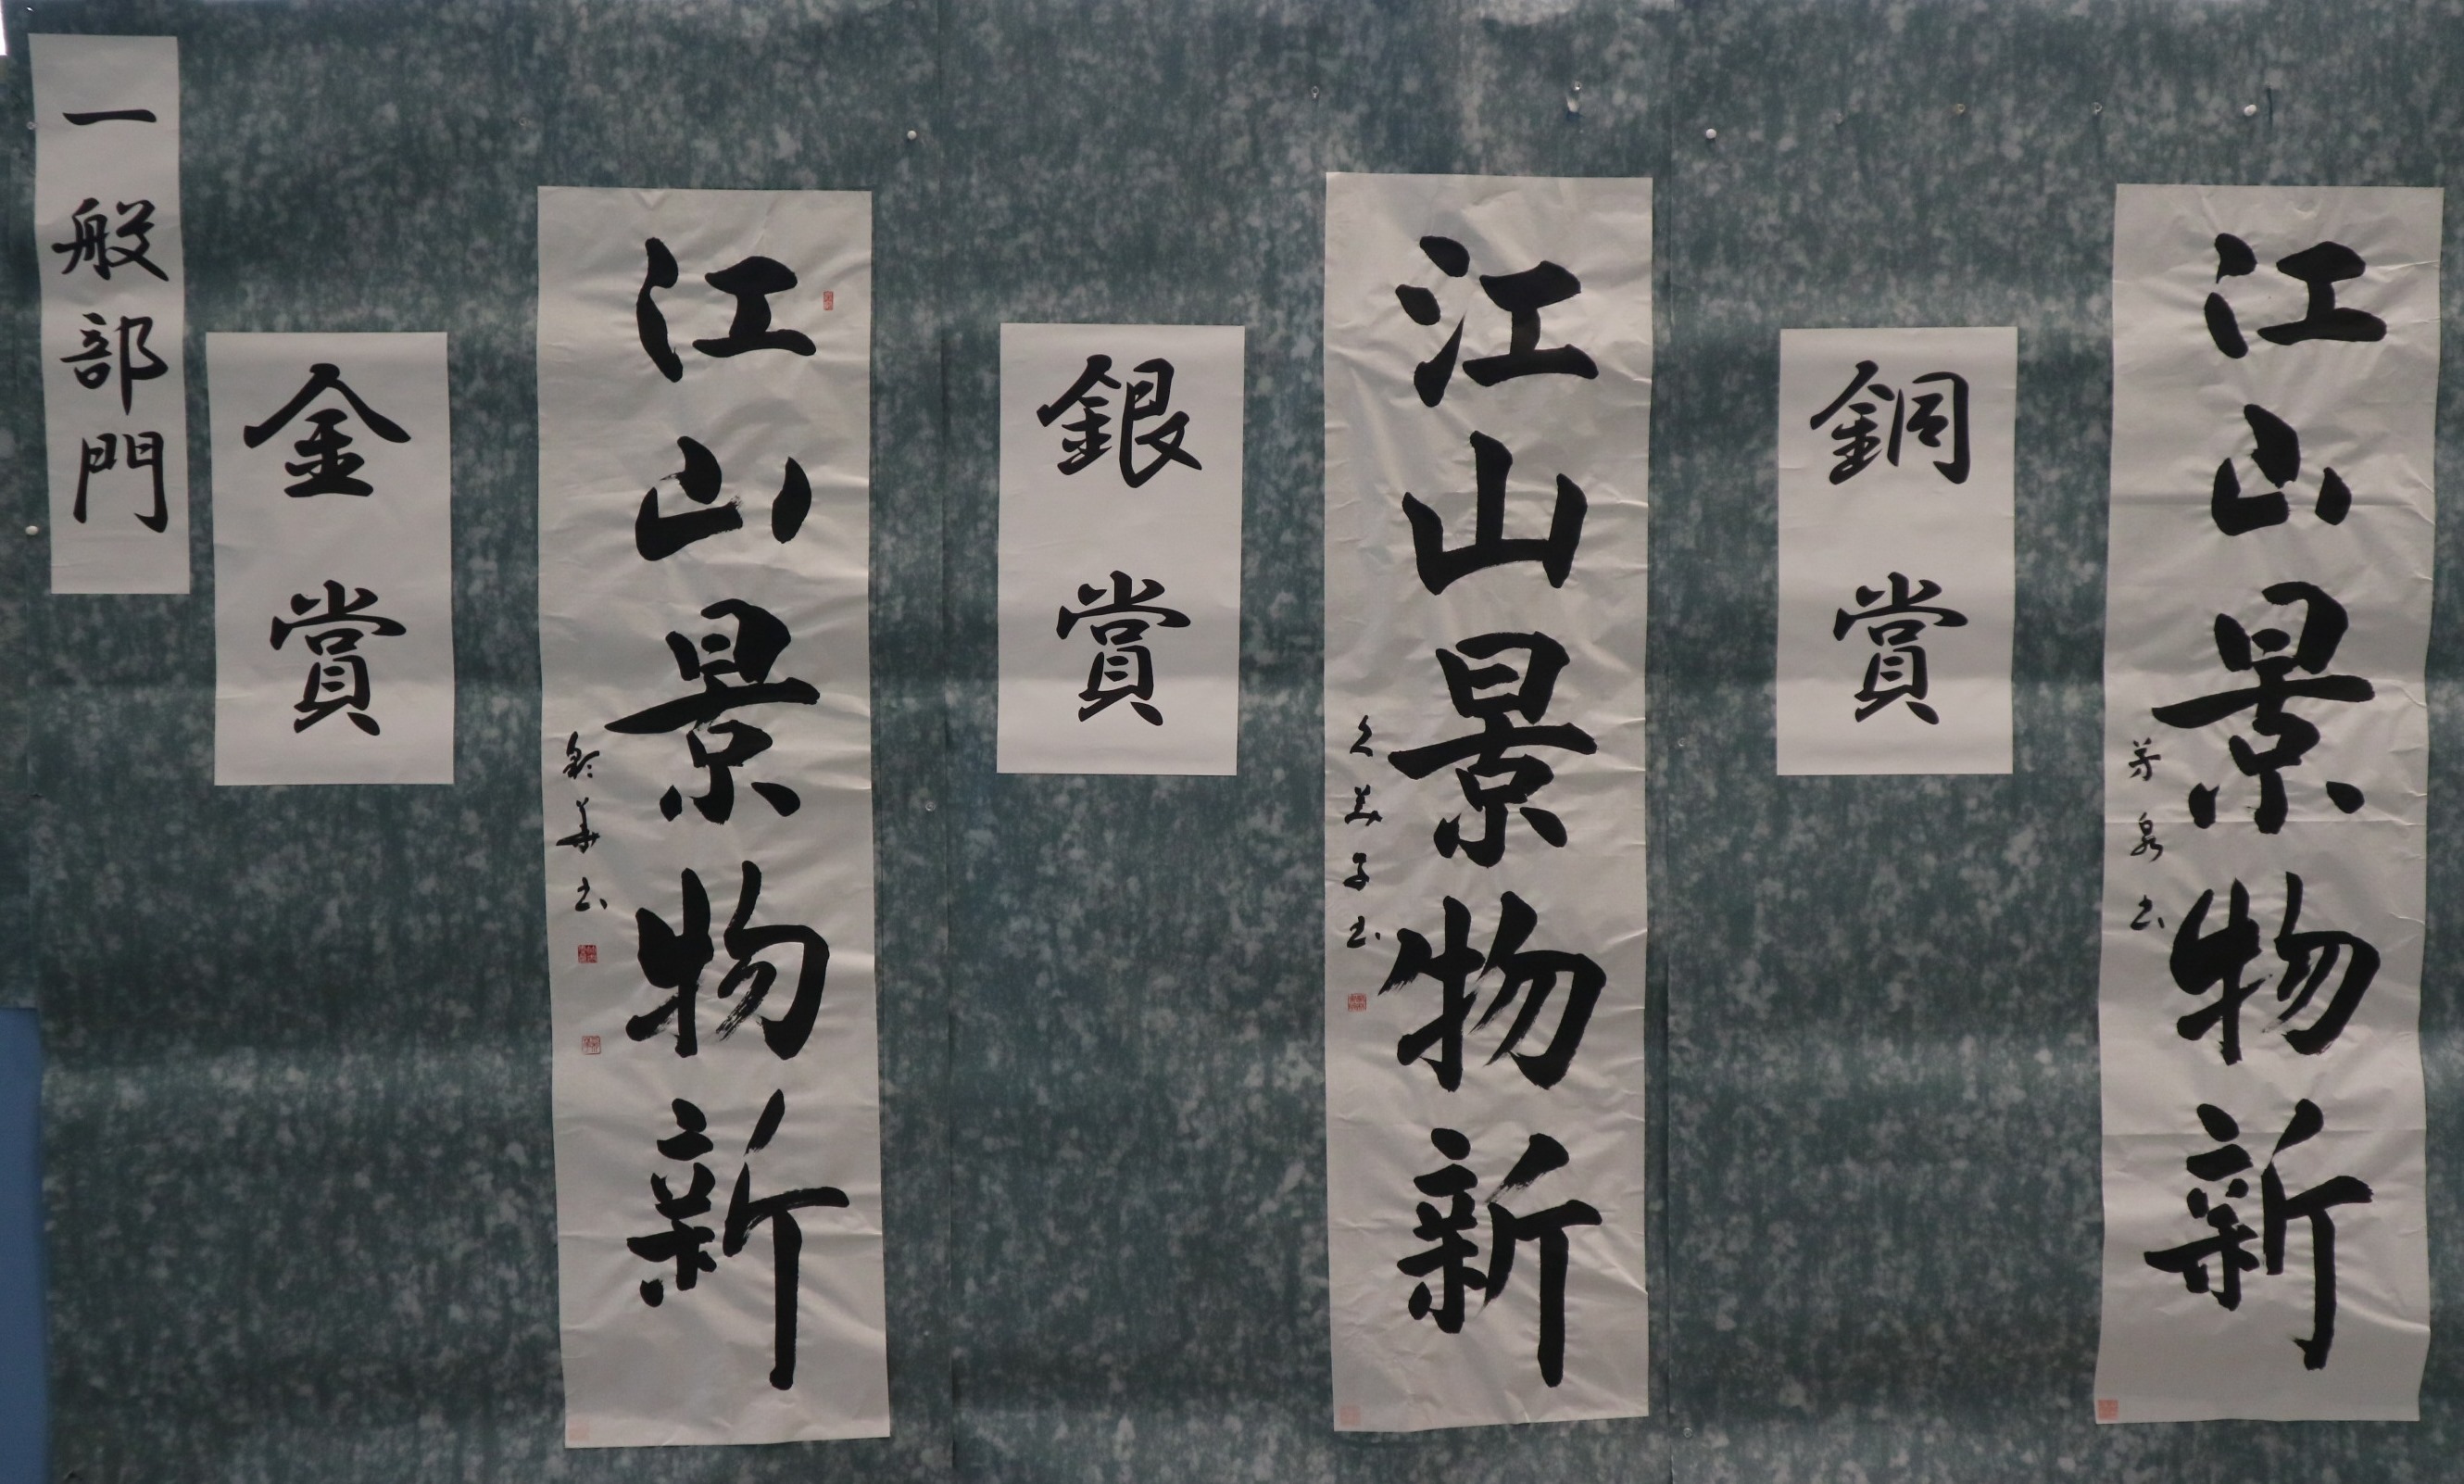 一般部門
金賞
江山景物新
銀賞
江山景物新
久美子书
銅賞
江山景物新
芳泉书